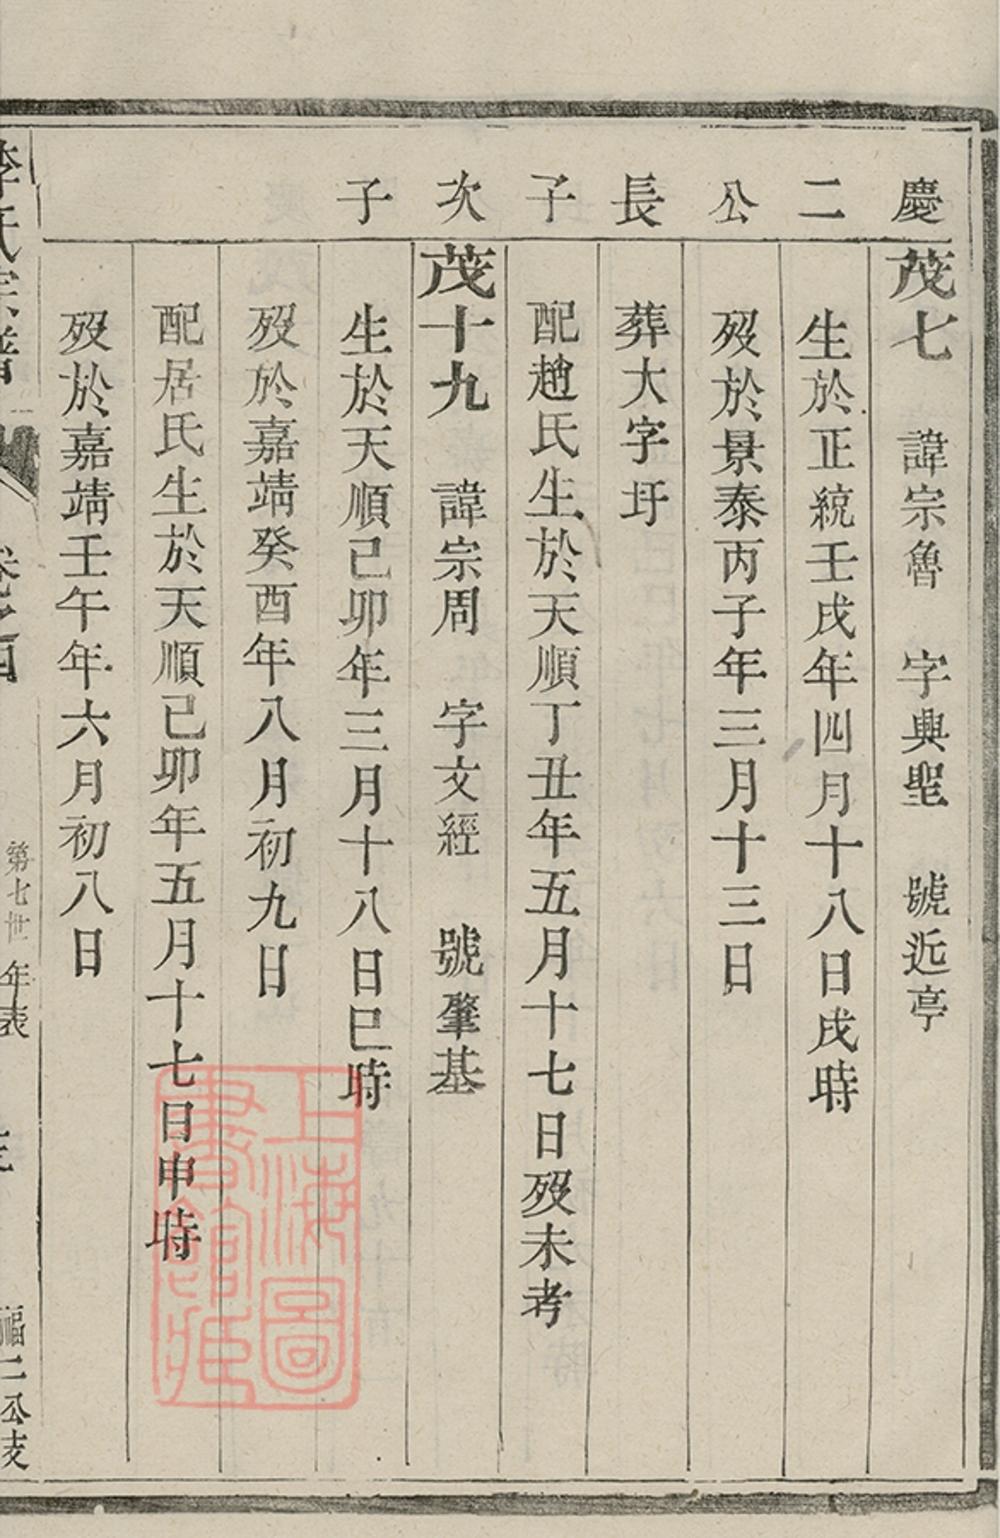 慶二公長子次子
茂七 諱宗魯 字典聖 號近亭
生於正統壬戌年四月十八日戌時
歿於景泰丙子年三月十三日
葬大字圩
配趙氏生於天順丁丑年五月十七日歿未考
茂十九 諱宗周 字文經 號肇基
生於天順己卯年三月十八日巳時
歿於嘉靖癸酉年八月初九日
配居氏生於天順己卯年五月十七日申時
歿於嘉靖壬午年六月初八日
李氏宗譜 卷之四 第七世 年表 福二公支
上海圖書館藏